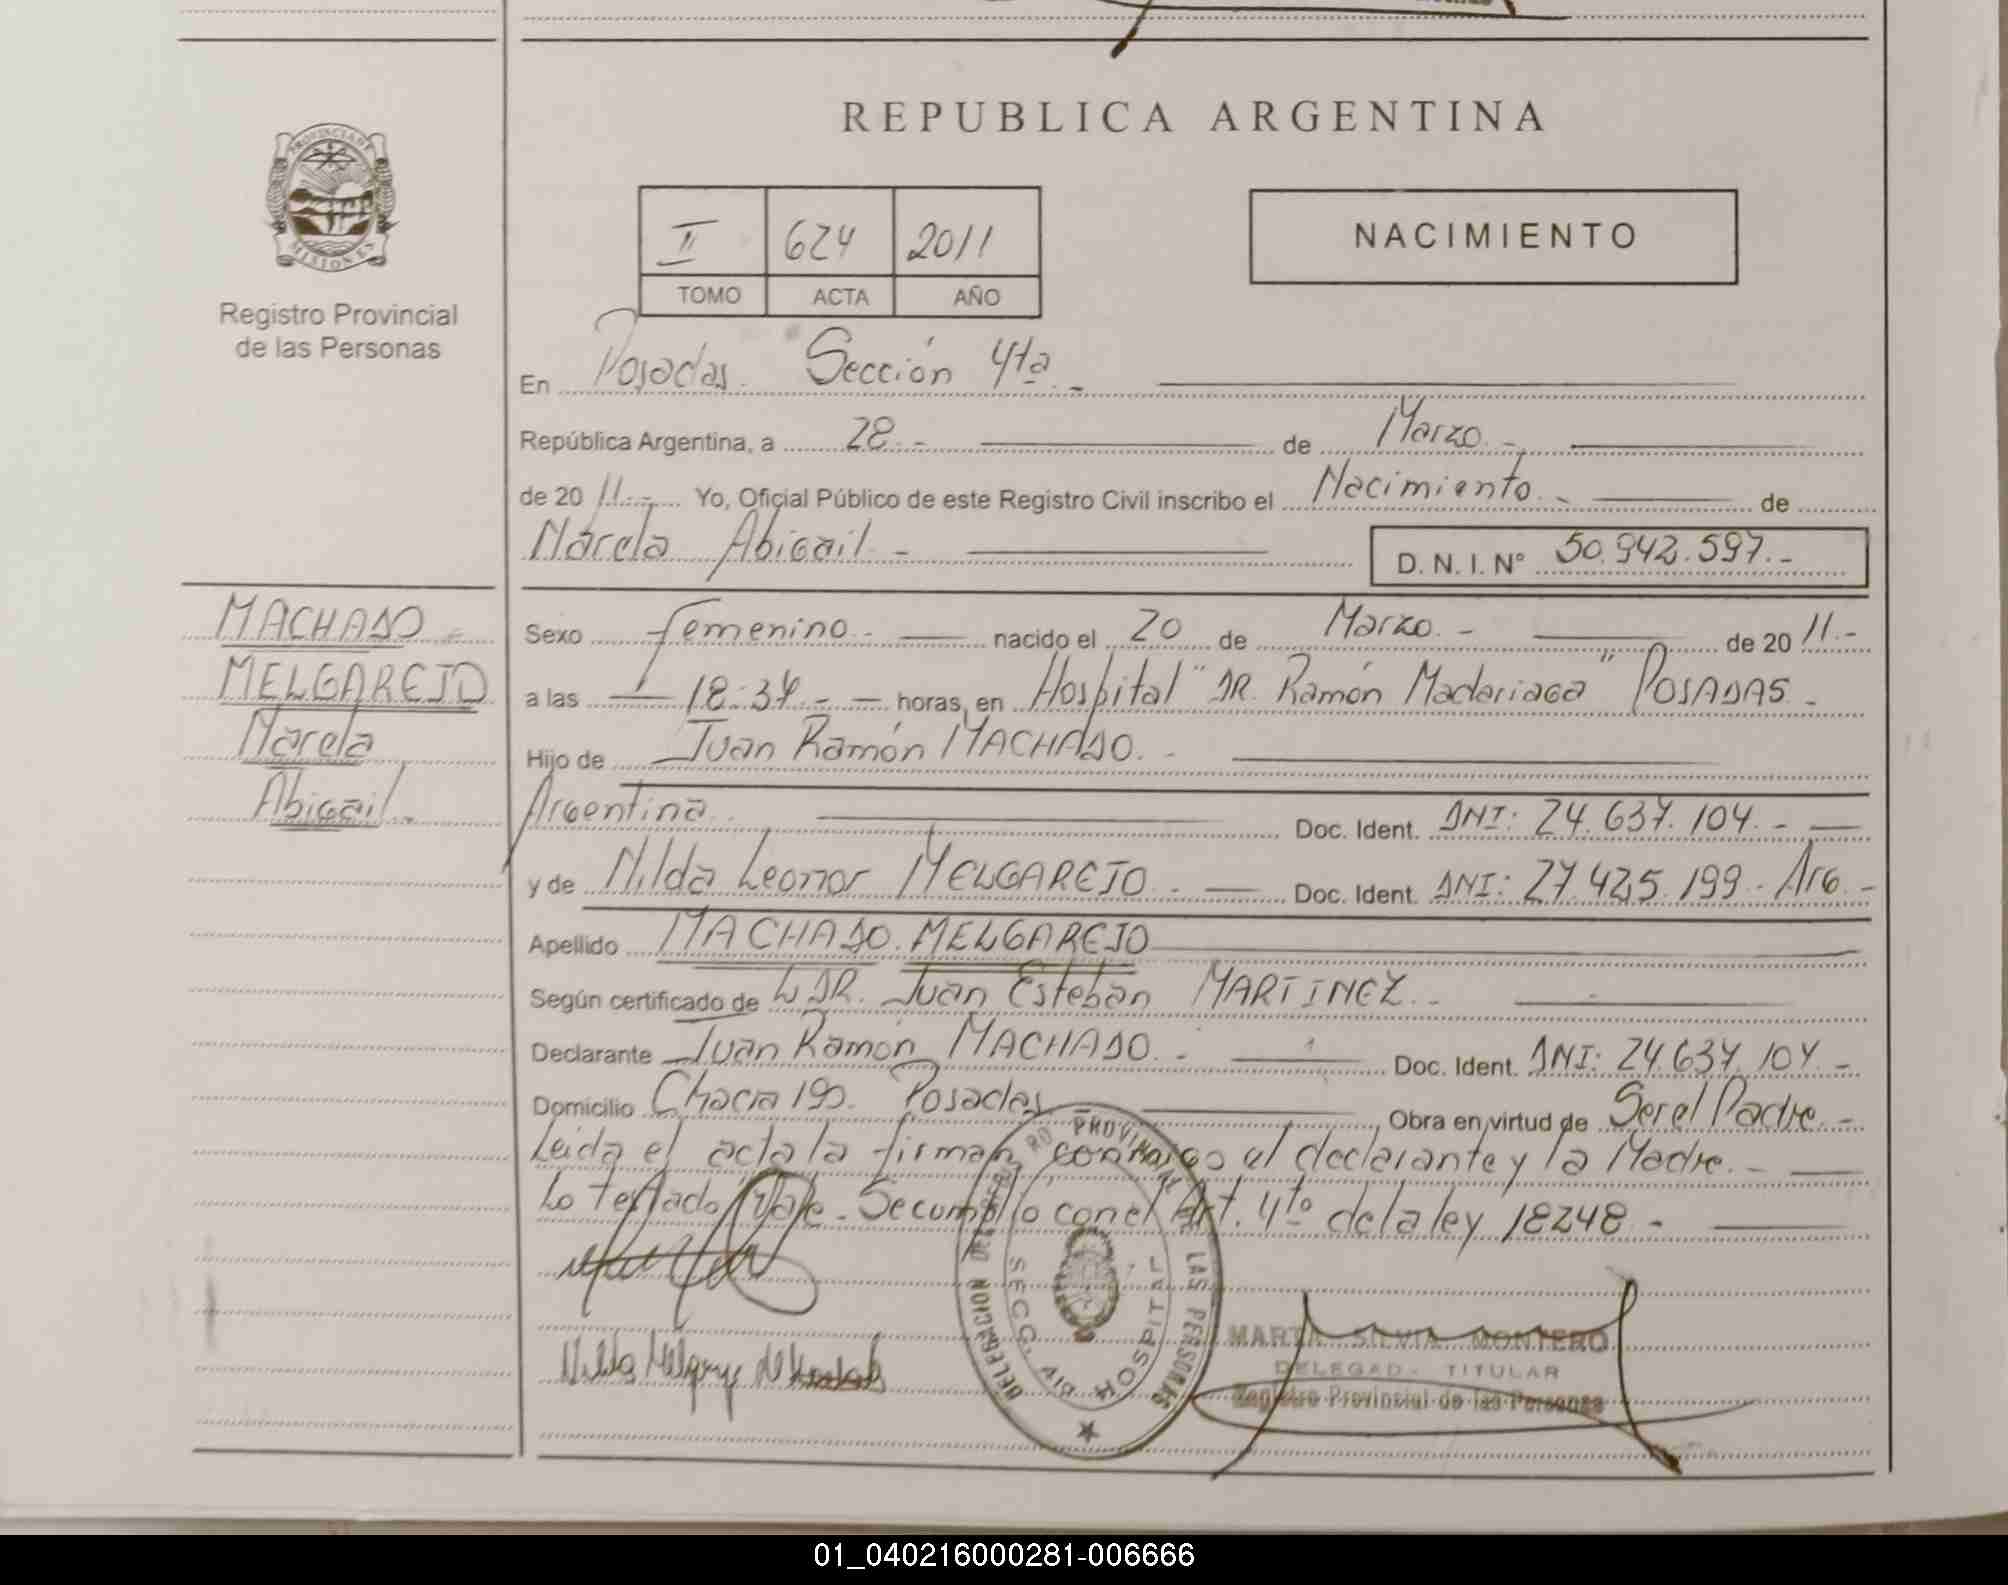 REPUBLICA ARGENTINA
PROVINCIA DE
MISIONES
Registro Provincial
de las Personas
II 624 2011
TOMO ACTA AÑO
NACIMIENTO
En Posadas. Sección 4ta.-
República Argentina, a 28.- de Marzo.-
de 20 11.- Yo, Oficial Público de este Registro Civil inscribo el Nacimiento.- de
Narela Abigail.- D. N. I. N° 50.942.597.-
MACHADO
MELGAREJO
Narela
Abigail.-
Sexo femenino.- nacido el 20 de Marzo.- de 20 11.-
a las 18:34.- horas, en Hospital "DR. Ramón Madariaga" POSADAS.-
Hijo de Juan Ramón MACHADO.-
Argentina. Doc. Ident. DNI: 24.637.104.-
y de Nilda Leonor MELGAREJO.- Doc. Ident. DNI: 27.425.199.- Arg.-
Apellido MACHADO MELGAREJO
Según certificado de DR. Juan Esteban MARTINEZ.-
Declarante Juan Ramón MACHADO.- Doc. Ident. DNI: 24.637.104.-
Domicilio Chacra 190. Posadas Obra en virtud de Ser el Padre.-
Leida el acta la firman conmigo el declarante y la Madre.-
Lo testado Vale.- Se cumplio con el Art. 4to de la ley 18248.-
DELEGACION DEL REGISTRO PROVINCIAL DE LAS PERSONAS
SECC. 4ta HOSPITAL
MARTA SILVIA MONTERO
DELEGAD- TITULAR
Registro Provincial de las Personas
01_040216000281-006666